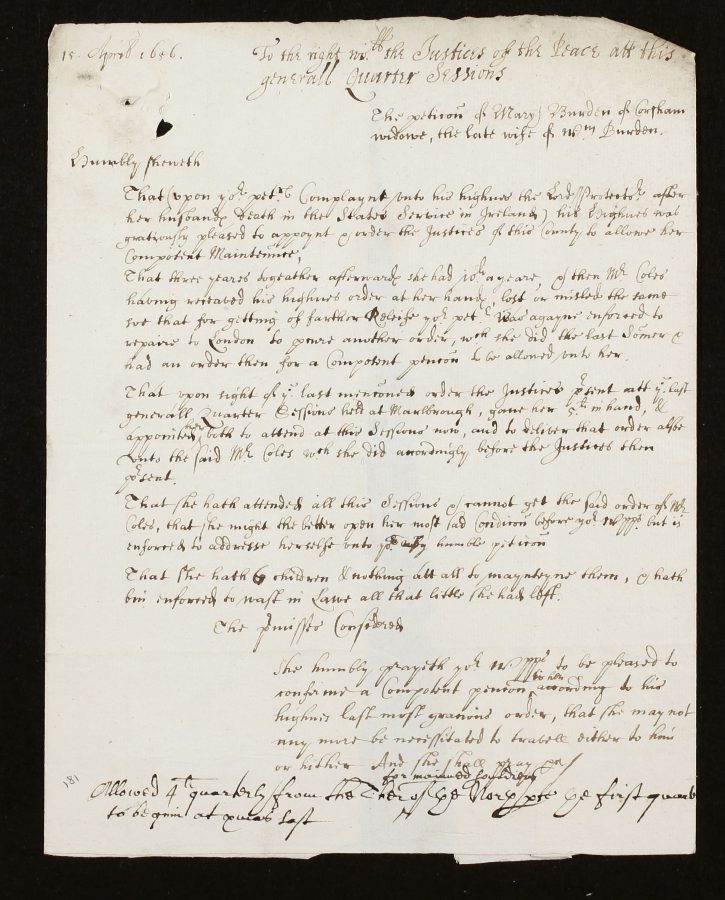 15 Aprill 1656.
To the right wo:ll the Justices of the Peace att this
generall Quarter Sessions
The peticon of Mary Burden of Corsham
widowe, the late wife of Wm Burden.
Humbly sheweth
That upon yor petrs Complaynt unto his highnes the Lord Protector after
her husbands Death in the States Service in Ireland his Highnes was
gratiously pleased to appoynt & order the Justices of this County to allowe her
Competent Maintennce,
That three yeares togeather afterwards she had a yeare, & then Mr Coles
having received his highnes order at her hands, lost or misled the same
soe that for getting of farther Releife yor petr was agayne enforced to
repaire to London to pcure another order, wch she did the last Somer &
had an order then for a Competent pencon to be allowed unto her.
That upon sight of ye last menconed order the Justices psent att ye last
generall Quarter Sessions held at Marlbrough, gave her 5s in hand, &
appointed her both to attend at this Sessions now, and to deliver that order alsoe
unto the said Mr Coles wch she did accordingly before the Justices then
psent.
That she hath attended all this Sessions & cannot get the said order of Mr
Coles, that she might the better open her most sad Condicon before yor Wpps but is
enforced to addresse herselfe unto yo by humble peticon
That she hath 6 children & nothing att all to maynteyne them, & hath
bin enforced to wast in Lawe all that little she had left.
The pmisses Considered
She humbly prayeth yor Wpps to be pleased to
confirme a Competent pencon to her according to his
highnes last most gracious order, that she may not
any more be necessitated to travell either to him
or hither And she shall pray &c
for maimed souldiers
Allowed 4 quarterly from the Ther of ye North pte ye first quarter
to begin at xmas last
181